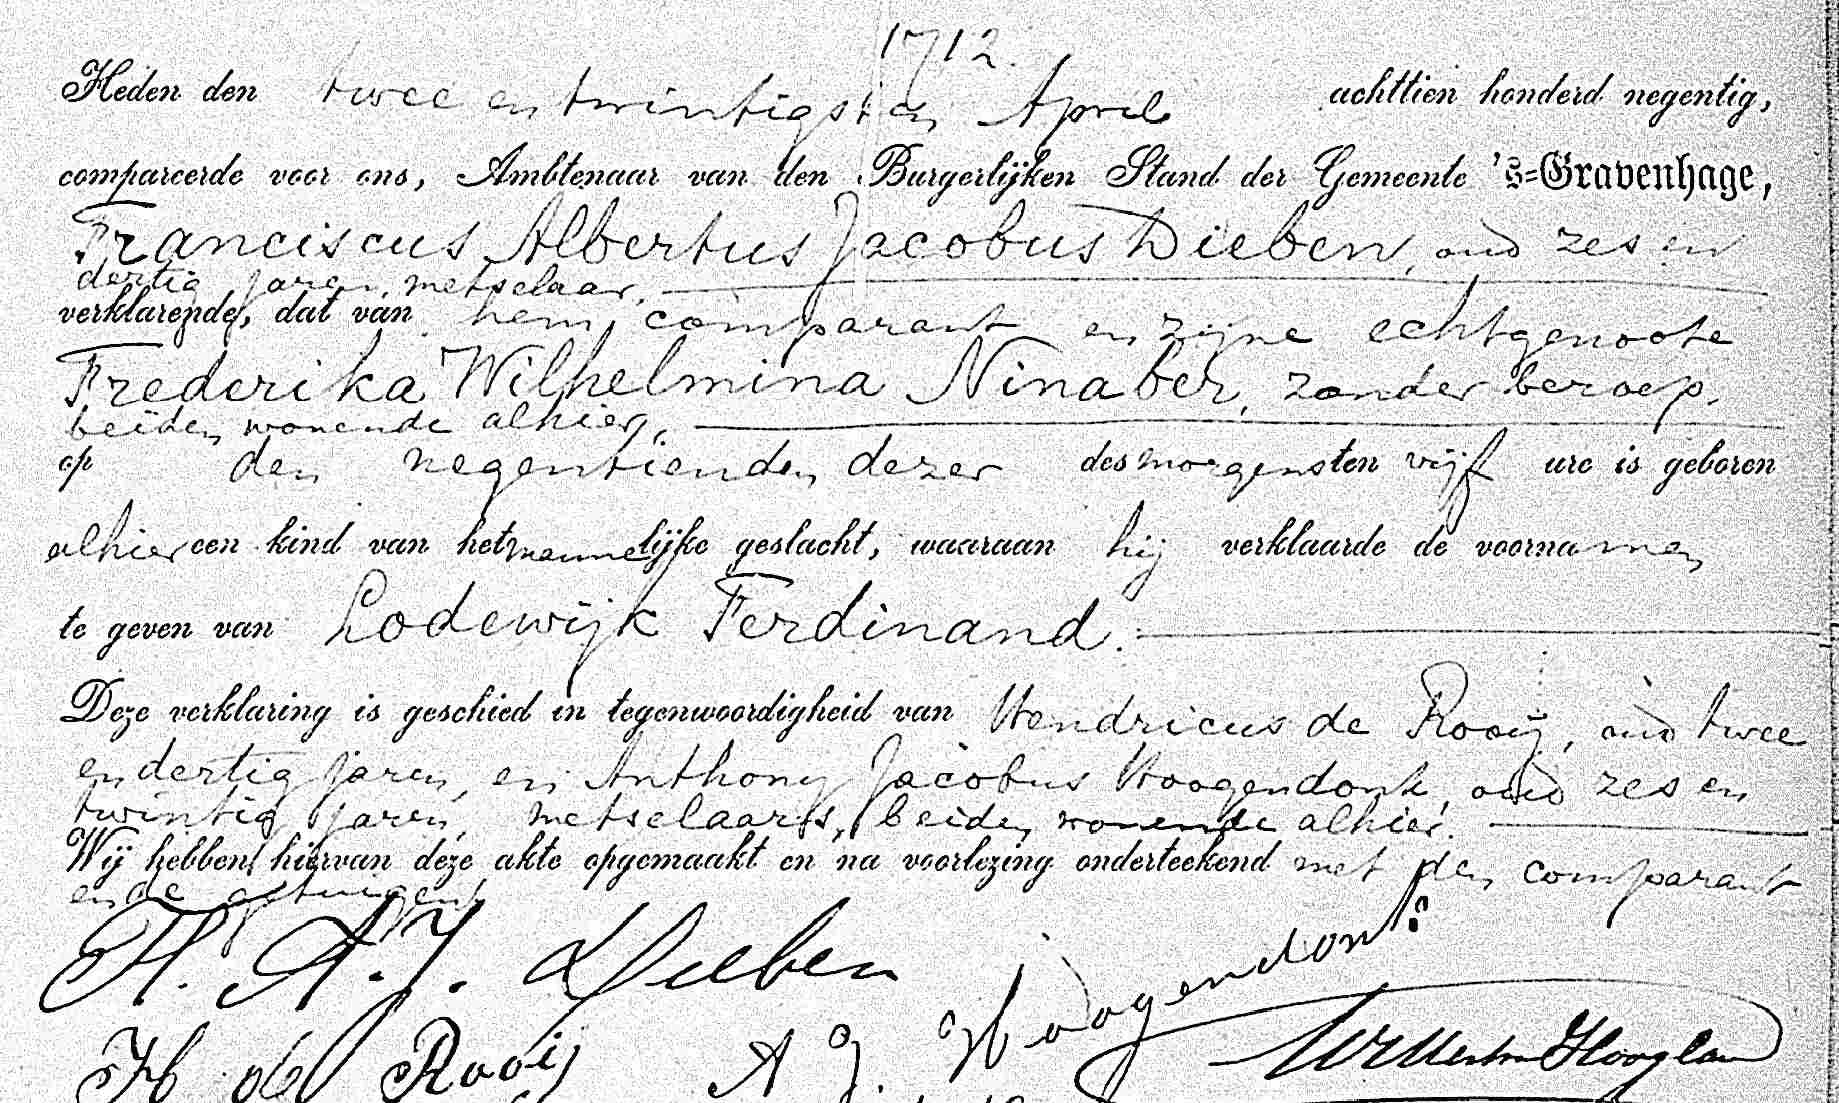 1712.
Heden den twee en twintigsten April achttien honderd negentig,
compareerde voor ons, Ambtenaar van den Burgerlijken Stand der Gemeente 's-Gravenhage,
Franciscus Albertus Jacobus Dieben, oud zes en
dertig jaren, metselaar,
verklarende, dat van hem, comparant en zijne echtgenoote
Frederika Wilhelmina Ninaber, zonder beroep,
beiden wonende alhier,
op den negentienden dezer des morgens ten vijf ure is geboren
alhier een kind van het mannelijke geslacht, waaraan hij verklaarde de voornamen
te geven van Lodewijk Ferdinand.
Deze verklaring is geschied in tegenwoordigheid van Hendricus de Rooij, oud twee
en dertig jaren, en Anthony Jacobus Hoogendonk, oud zes en
twintig jaren, metselaars, beiden wonende alhier.
Wij hebben hiervan deze akte opgemaakt en na voorlezing onderteekend met den comparant
en de getuigen.
F. A. J. Dieben
H de Rooij A J. Hoogendonk